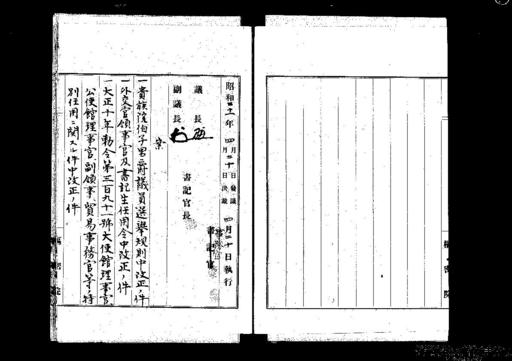 昭和二十一年
四月二十日発議
四月二十日決裁
四月二十日執行
議長
副議長
書記官長
書記官
案
一貴族院伯子男爵議員選挙規則中改正ノ件
一外交官領事官及書記生任用令中改正ノ件
一大正十年勅令第三百九十一號大使館理事官
公使館理事官、副領事、貿易事務官等ノ特
別任用ニ関スル件中改正ノ件
樞密院